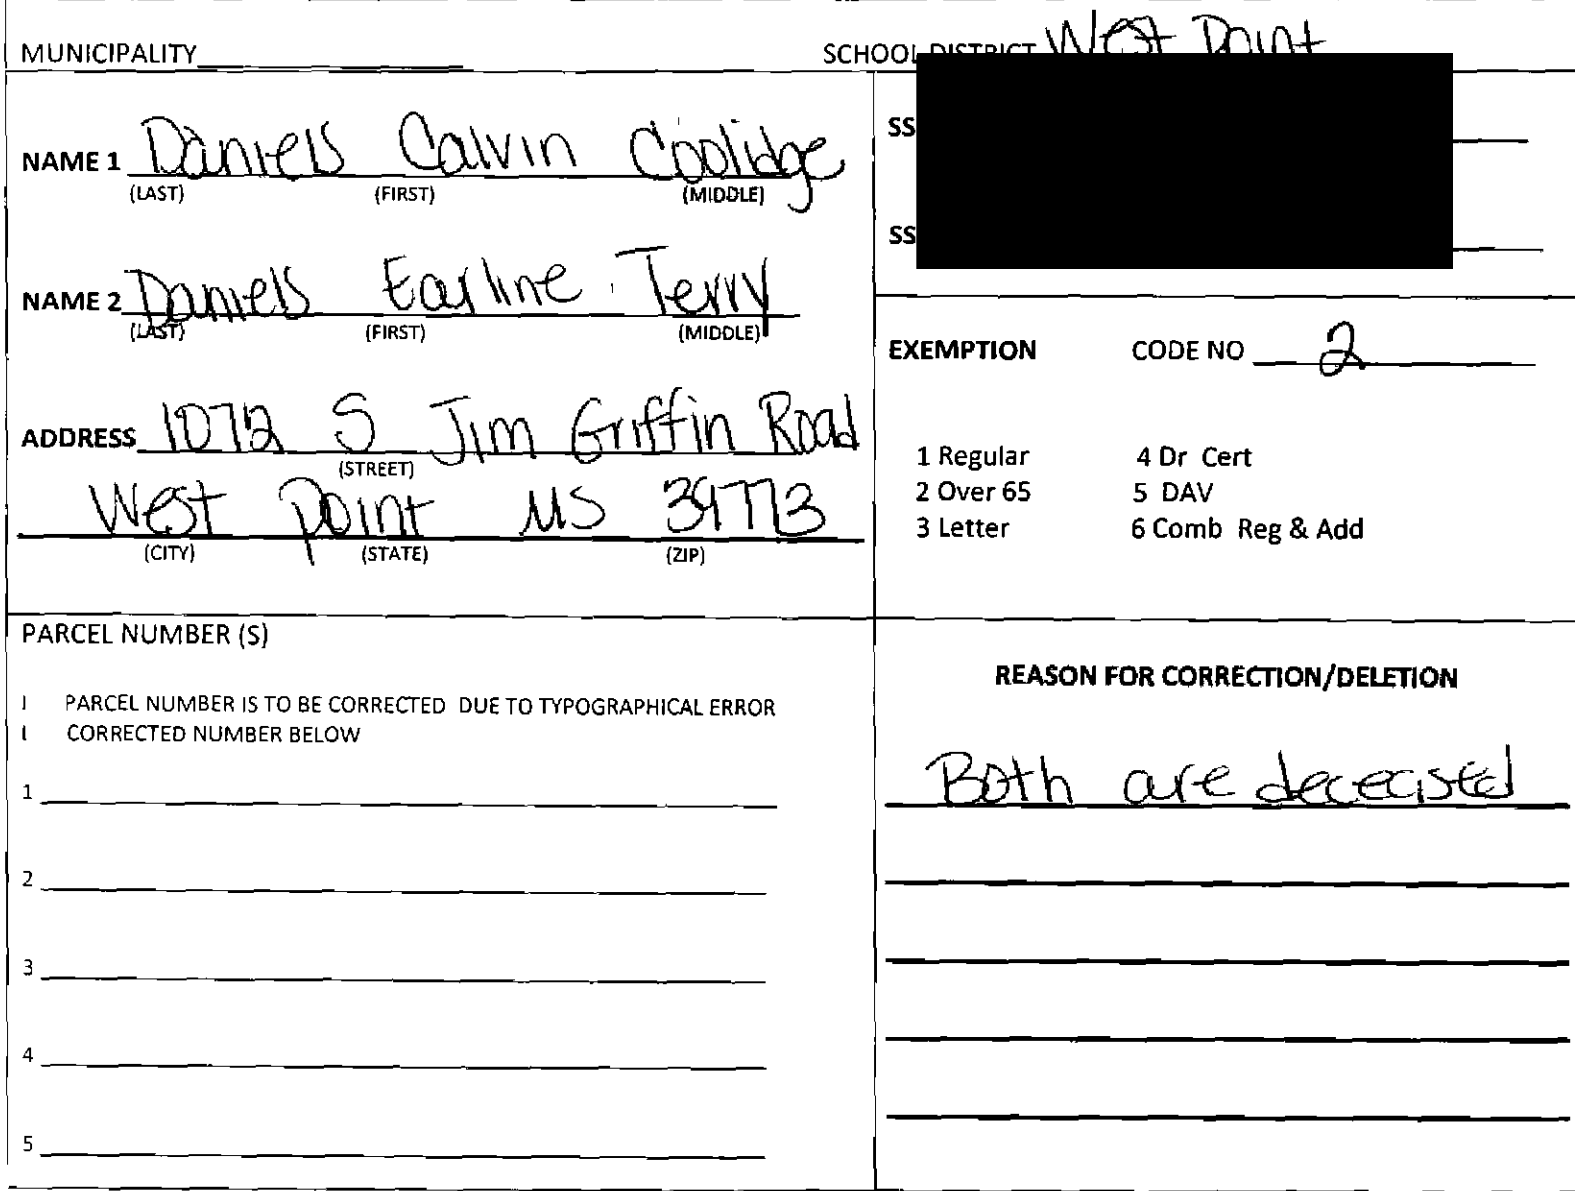 MUNICIPALITY SCHOOL DISTRICT West Point
NAME 1 Daniels Calvin Coolidge SS
(LAST) (FIRST) (MIDDLE)
SS
NAME 2 Daniels Earline Terry
(LAST) (FIRST) (MIDDLE)
EXEMPTION CODE NO 2
ADDRESS 1072 S Jim Griffin Road
(STREET)
West Point MS 39773
(CITY) (STATE) (ZIP)
1 Regular 4 Dr Cert
2 Over 65 5 DAV
3 Letter 6 Comb Reg & Add
PARCEL NUMBER (S)
PARCEL NUMBER IS TO BE CORRECTED DUE TO TYPOGRAPHICAL ERROR
CORRECTED NUMBER BELOW
1
2
3
4
5
REASON FOR CORRECTION/DELETION
Both are deceased